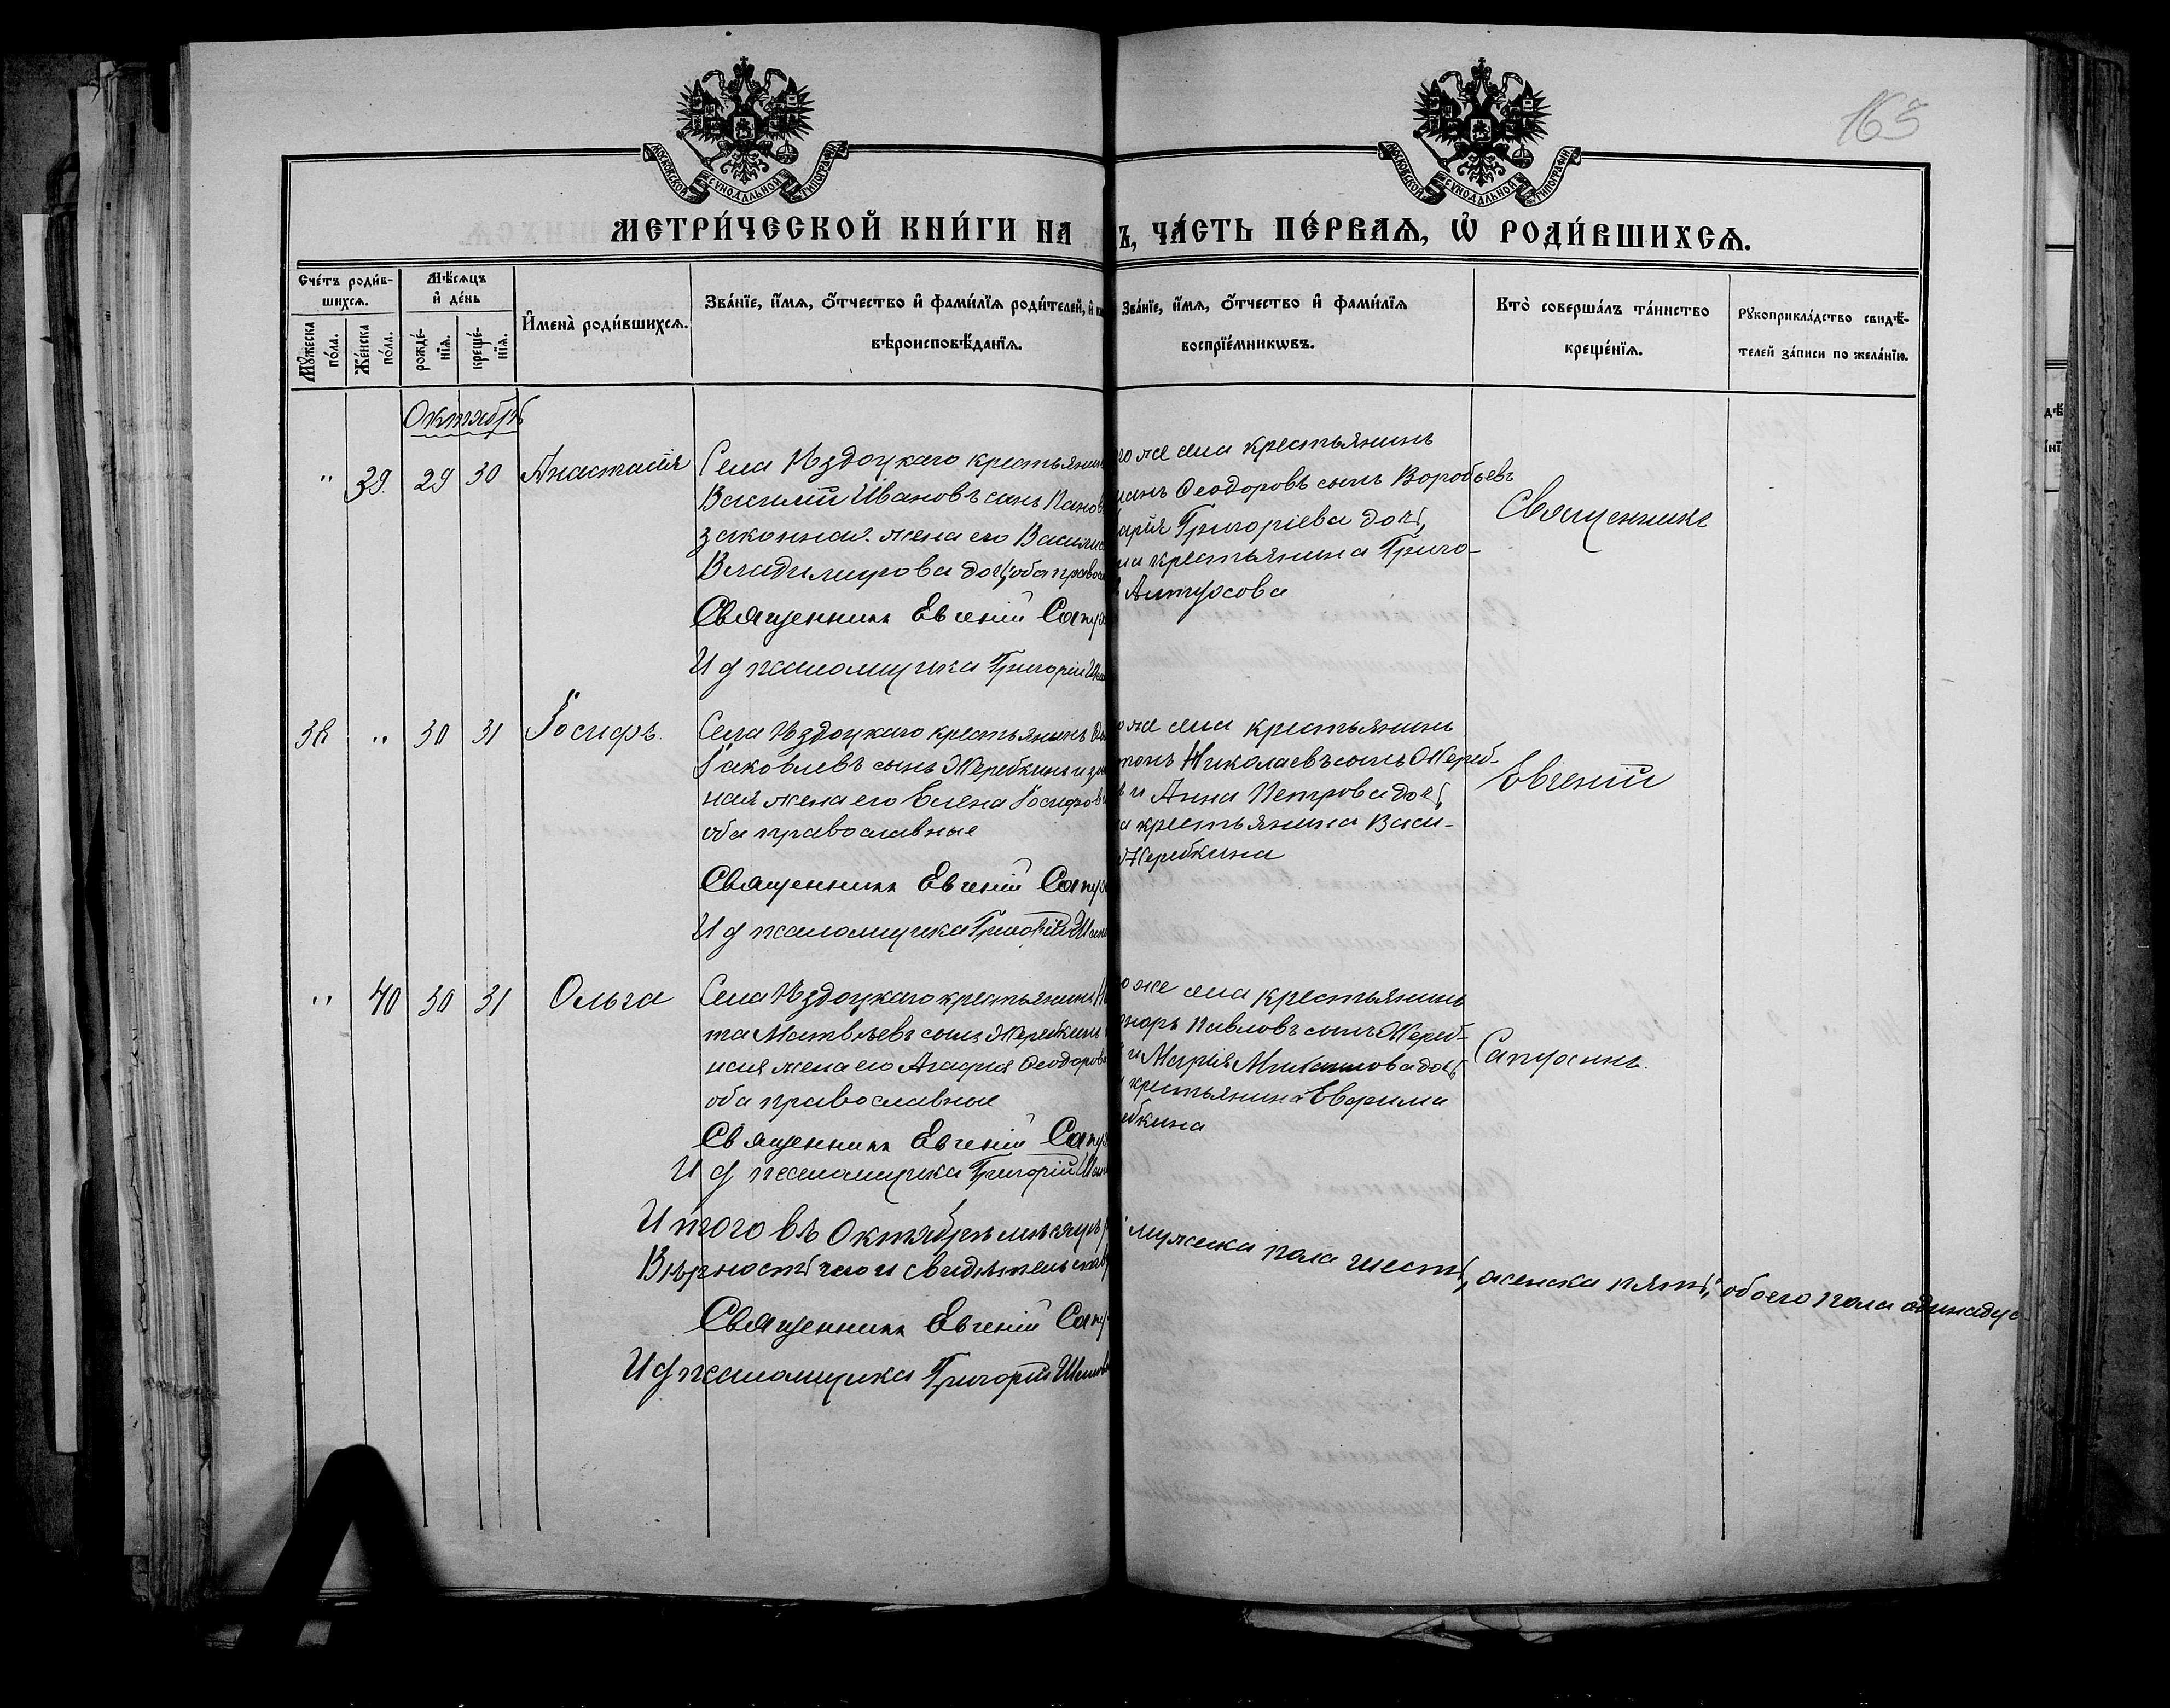 163
МОСКОВСКОЙ СѴНОДАЛЬНОЙ ТИПОГРАФІИ
МОСКОВСКОЙ СѴНОДАЛЬНОЙ ТИПОГРАФІИ
МЕТРИ́ЧЕСКОЙ КНИ́ГИ НА
Ъ, ЧА́СТЬ ПЕ́РВАѦ, Ѡ҆ РОДИ́ВШИХСѦ.
Сче́тъ роди́в-
шихсѧ.
Мꙋ́жеска по́ла.
Же́нска по́ла.
Мѣ́сѧцъ
и҆ де́нь
рожде́-нїѧ.
креще́-нїѧ.
И҆мена̀ роди́вшихсѧ.
Зва́нїе, и҆́мѧ, ѻ҆́тчество и҆ фами́лїѧ роди́телей, и҆
вѣроисповѣ́данїѧ.
Зва́нїе, и҆́мѧ, ѻ҆́тчество и҆ фами́лїѧ
воспрїе́мникѡвъ.
Кто̀ соверша́лъ та́инство
креще́нїѧ.
Рꙋкоприкла́дство свидѣ́-
телей за́писи по жела́нїю.
Октябрь
" 39. 29 30 Анастасія
Села Нздоцкаго крестьянинъ
Василій Ивановъ сынъ Панов
законная жена его Васили
Владимирова дочь, оба правос
Священникъ Евгеній Сапух
И д псаломщика Григорій
го же села крестьянинъ
Ѳеодоровъ сынъ Воробьевъ
арія Григоріева дочь,
на крестьянина Григо-
Алтухова
Священникъ
38 " 30 31 Іосифъ.
Села Нздоцкаго крестьянинъ
Іаковлевъ сынъ Жеребкинъ и зак
ная жена его Елена Іосифов
оба православные
Священникъ Евгеній Сапух
И д псаломщика Григорій
о же села крестьянинъ
Николаевъ сынъ Жереб-
ъ и Анна Петрова дочь,
а крестьянина Васи-
Жеребкина
Евгеній
" 40 30 31 Ольга
Села Нздоцкаго крестьянинъ Ни
та Матвѣевъ сынъ Жеребкинъ
ная жена его Агафія Ѳеодоров
оба православные
Священникъ Евгеній Сапух
И д псаломщика Григорій
о же села крестьянинъ
Павловъ сынъ Жереб-
и Марія Михаилова дочь
крестьянина Евфима
ебкина
Сапухинъ.
Итого въ Октябрѣ мѣсяцѣ
мужеска пола шесть, женска пять, обоего пола одинадца
Вѣрность чего и свидѣтельств
Священникъ Евгеній Сапу
И д псаломщика Григорій